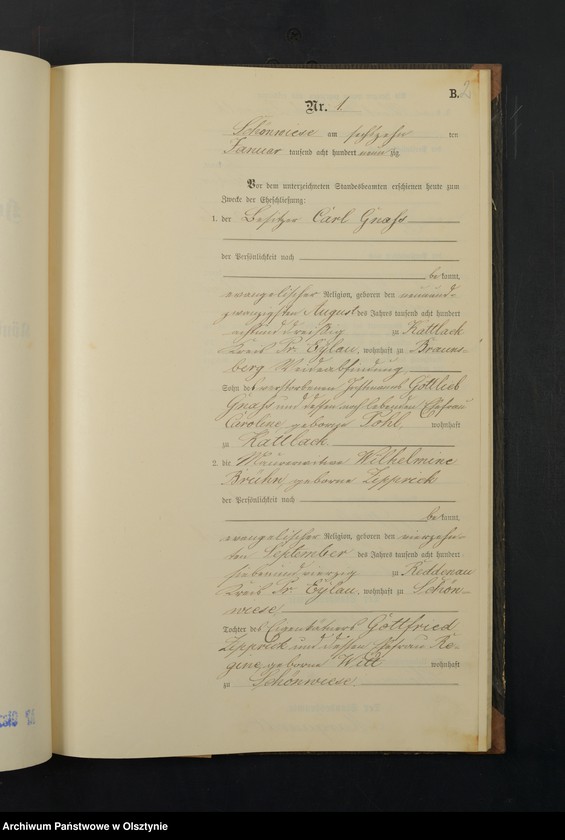 B. 2
Nr. 1
Schönwiese am sechzehn ten
Januar tausend acht hundert neunzig.
Vor dem unterzeichneten Standesbeamten erschienen heute zum
Zwecke der Eheschließung:
1. der Besitzer Carl Gnaß
der Persönlichkeit nach
bekannt,
evangelischer Religion, geboren den neunund-
zwanzigsten August des Jahres tausend acht hundert
achtunddreißig zu Kattlack
Kreis Pr. Eylau, wohnhaft zu Brauns-
berg
Sohn des verstorbenen Gottlieb
Gnaß und dessen noch lebenden Ehefrau
Caroline geborne Pohl wohnhaft
zu Kattlack
2. die Wilhelmine
Brühn geborne Zipprick
der Persönlichkeit nach
bekannt,
evangelischer Religion, geboren den vierzehn-
ten September des Jahres tausend acht hundert
siebenundvierzig zu Reddenau
Kreis Pr. Eylau, wohnhaft zu Schön-
wiese
Tochter des Eigenkätners Gottfried
Zipprick und dessen Ehefrau Re-
gine geborne Witt wohnhaft
zu Schönwiese
Archiwum Państwowe w Olsztynie